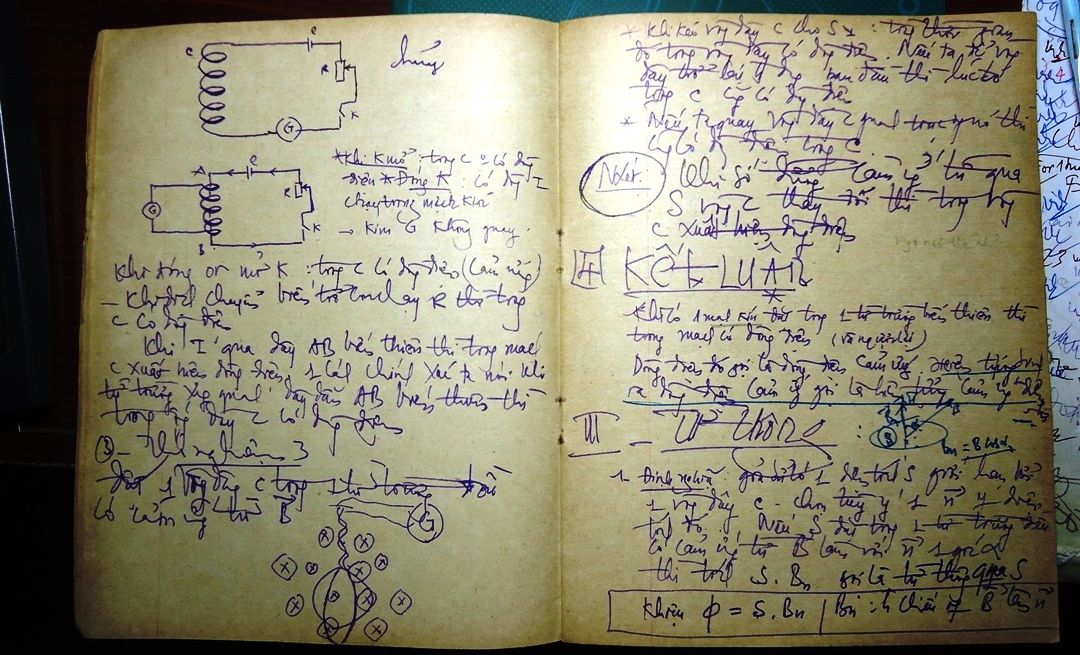 C
e
R
K
G
chúng
A
e
R
G
B
K
* Khi K mở : trong C o có dòng
điện * Đóng K : có dòng I
chạy trong mạch khi
→ Kim G không quay.
Khi đóng or mở K : trong C có dòng điện (Cảm ứng)
— Khi dịch chuyển biến trở con chạy R thì trong
C có dòng điện
Khi I qua dây AB biến thiên thì trong mạch
C xuất hiện dòng điện, 1 cách chính xác ta nói khi
từ trường xung quanh dây dẫn AB biến thiên thì
trong ống dây C có dòng điện
③ - Thí nghiệm 3
đặt 1 vòng dây C trong 1 từ trường đều
có cảm ứng từ B
G
* Khi kéo vòng dây C cho S : trong thời gian
đó trong vòng dây có dòng điện. Nếu ta để vòng
dây trở lại dạng ban đầu thì lúc đó
trong C cũng có dòng điện
* Nếu ta quay vòng dây C quanh trục của nó thì
cũng có dòng điện trong C
Nhxét: Khi số đường cảm ứng từ qua
S vòng C thay đổi thì trong vòng
C xuất hiện dòng điện
4 KẾT LUẬN
Khi có 1 mạch kín đặt trong 1 từ trường biến thiên thì
trong mạch có dòng điện (và ngược lại)
Dòng điện đó gọi là dòng điện cảm ứng. Hiện tượng sinh
ra dòng điện cảm ứng gọi là hiện tượng cảm ứng điện
III - Từ thông :
Bn = B cosα
1. Định nghĩa: giả sử có 1 diện tích S giới hạn bởi
1 vòng dây C. chọn tùy ý 1 n
Nếu S đặt trong 1 từ trường đều
có cảm ứng từ B làm với n 1 góc α
thì tích S.Bn gọi là từ thông qua S
Khiệu Φ = S.Bn | Bn : h chiếu of B lên n